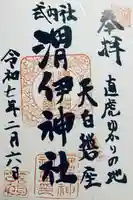 奉拝
直虎ゆかりの地
天白磐座
式内社
渭伊神社
令和七年二月六日